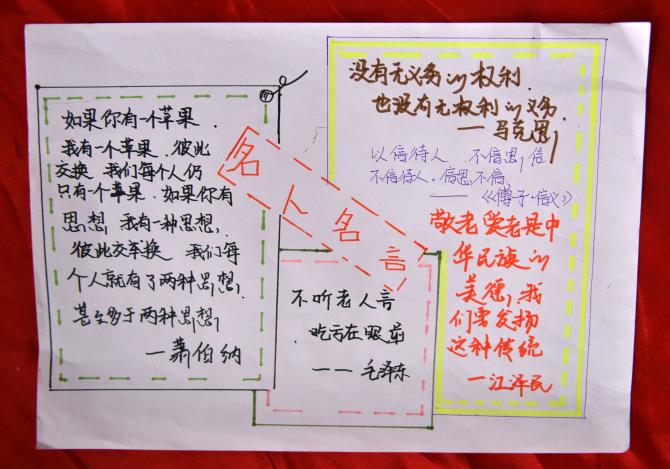 名人名言
如果你有一个苹果
我有一个苹果.彼此
交换 我们每个人仍
只有一个苹果.如果你有
思想,我有一种思想,
彼此交车换 我们每
个人就有了两种思想,
甚至多于两种思想,
—萧伯纳
不听老人言
吃亏在眼前
———毛泽东
没有无义务的权利.
也没有无权利的义务.
——马克思,
以信待人 不信思,信
不信待人.信思不信
——《傅子·信义》
敬老爱老是中
华民族的
美德,我
们要发扬
这种传统
—江泽民